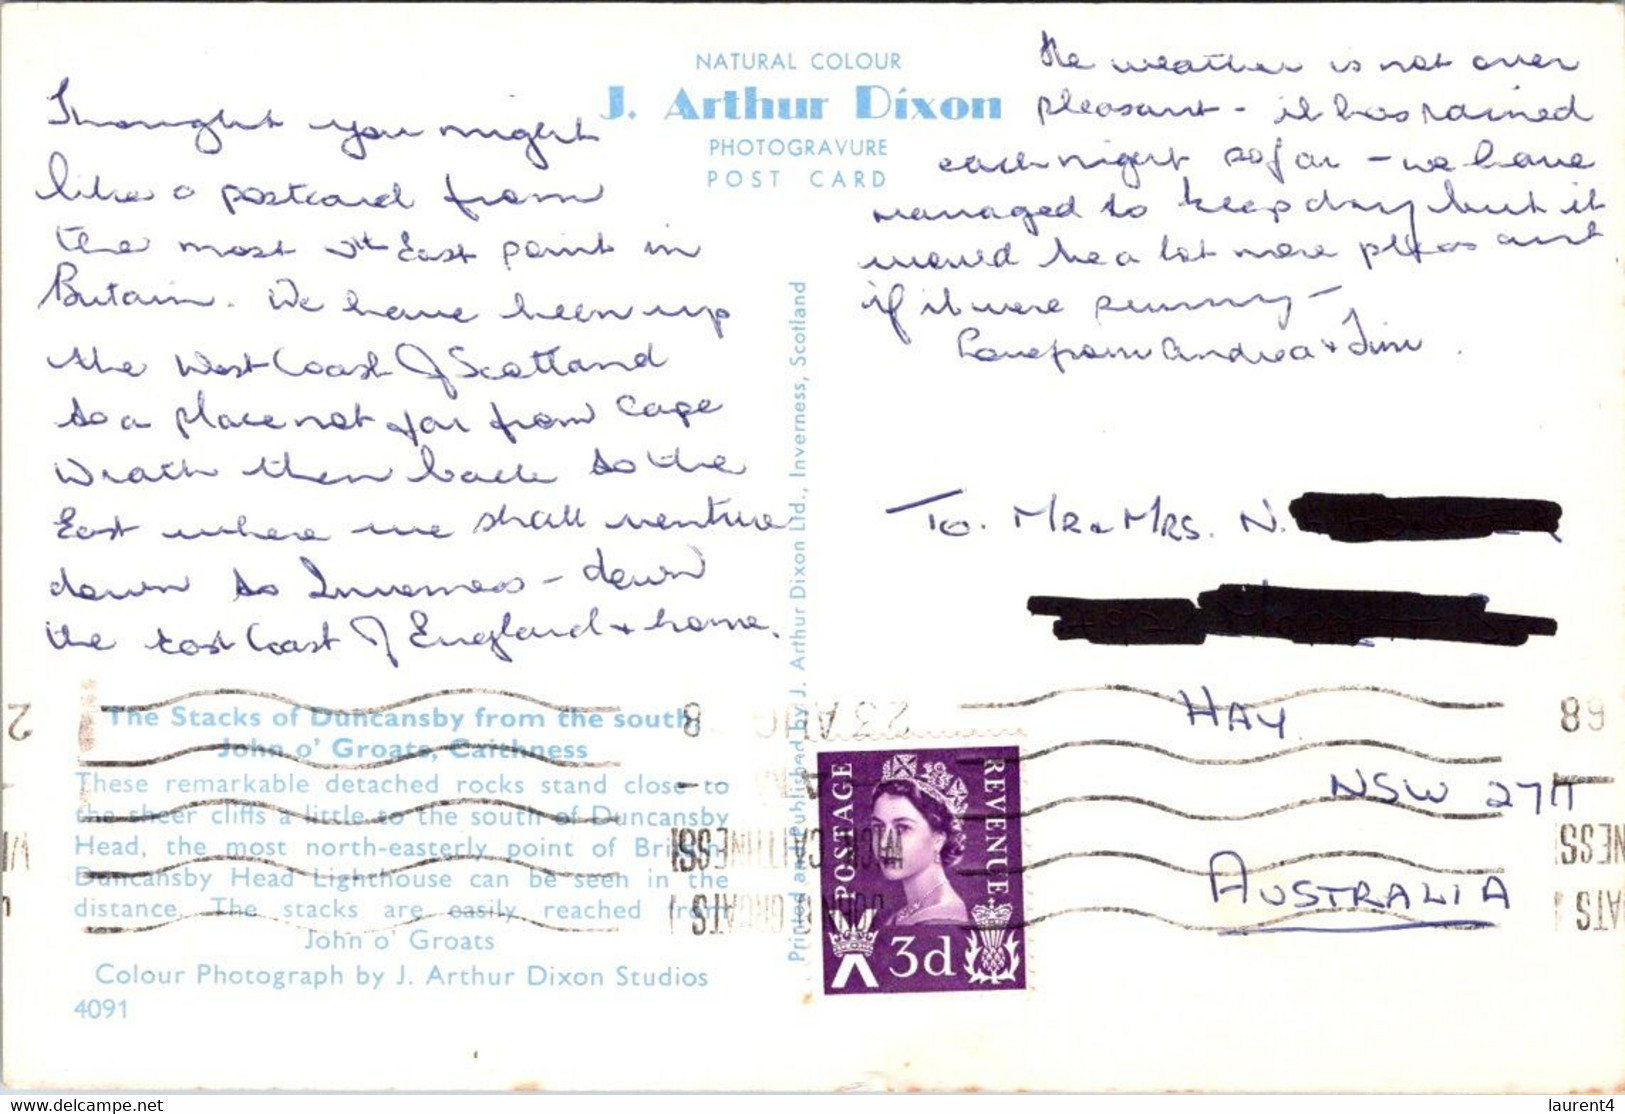 NATURAL COLOUR
J. Arthur Dixon
PHOTOGRAVURE
POST CARD
Thought you might
like a postcard from
the most Nth East point in
Britain. We have been up
the West Coast of Scotland
to a place not far from Cape
Wrath then back to the
East where we shall venture
down to Inverness - down
the East Coast of England & home.
The weather is not over
pleasant - it has rained
each night so far - we have
managed to keep dry but it
would be a lot more pleasant
if it were sunny -
Love from Andrea & Jim.
To. MR & MRS. N.
HAY.
NSW 2711
AUSTRALIA
The Stacks of Duncansby from the south
John o' Groats, Caithness
These remarkable detached rocks stand close to
the sheer cliffs a little to the south of Duncansby
Head, the most north-easterly point of Britain.
Duncansby Head Lighthouse can be seen in the
distance. The stacks are easily reached from
John o' Groats
Colour Photograph by J. Arthur Dixon Studios
4091
Printed and Published by J. Arthur Dixon Ltd., Inverness, Scotland
POSTAGE
REVENUE
3d
23 AUG
68
delcampe.net
laurent4